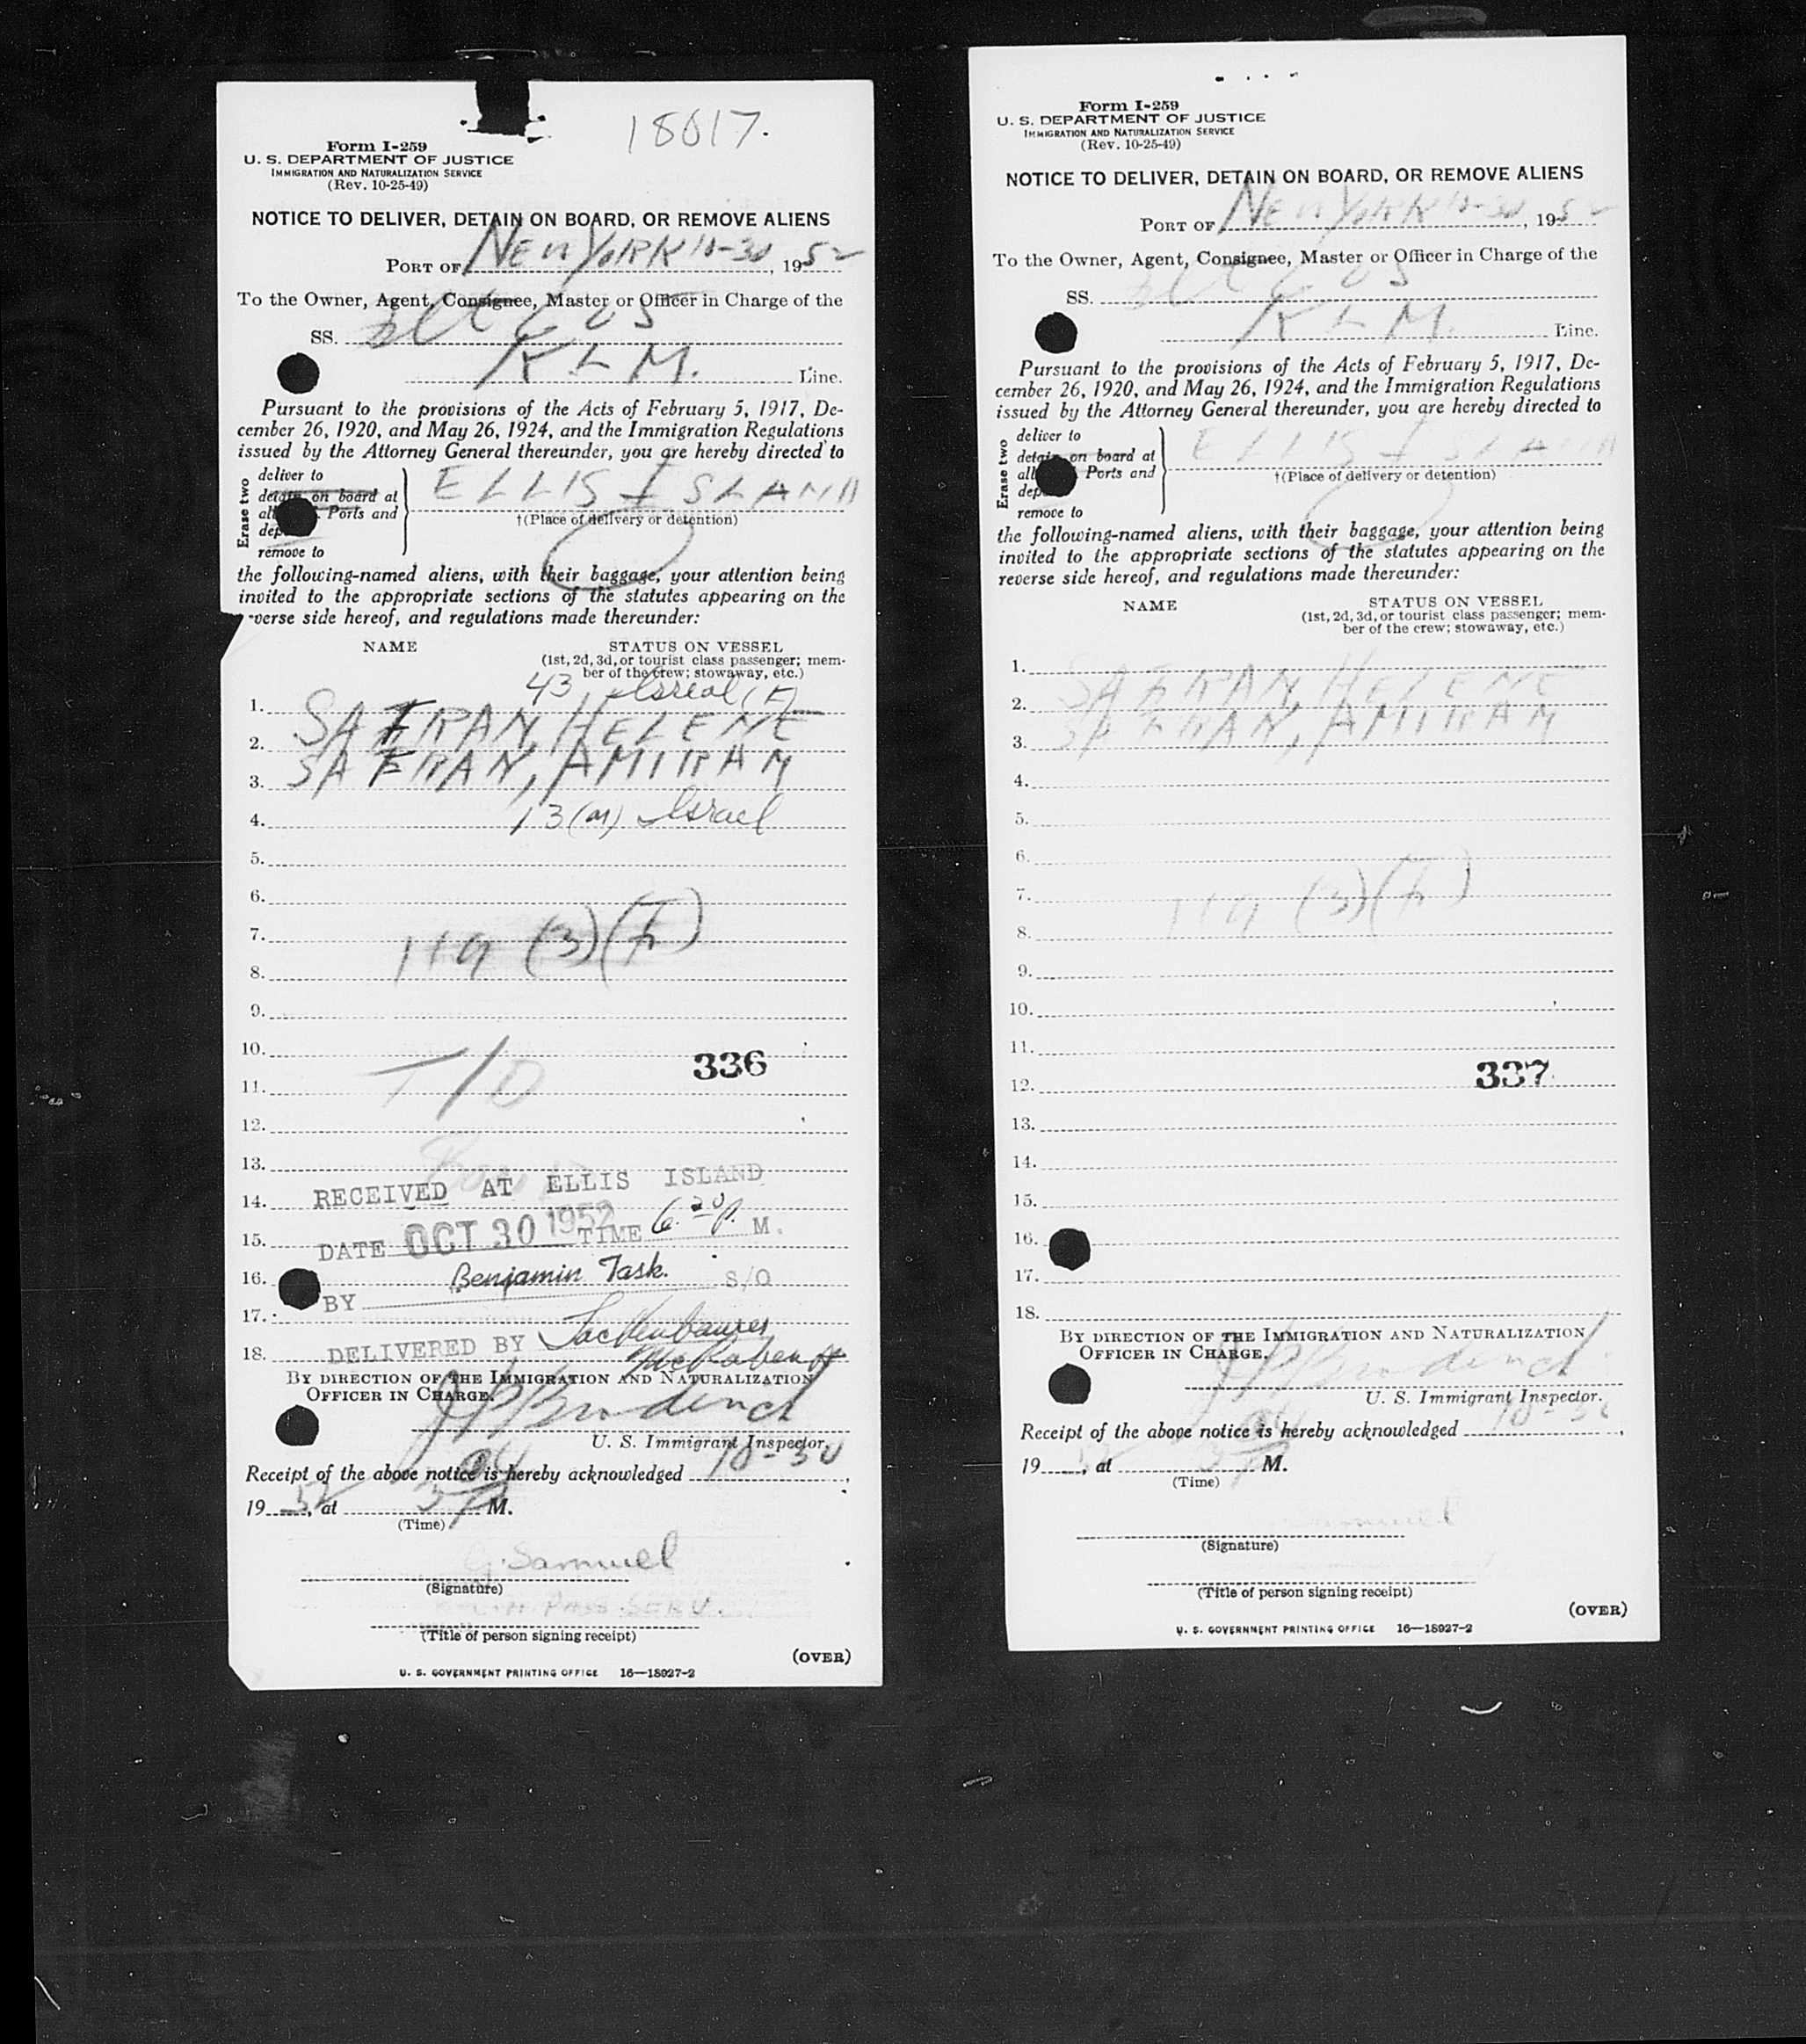 18017.
Form I-259
U. S. DEPARTMENT OF JUSTICE
IMMIGRATION AND NATURALIZATION SERVICE
(Rev. 10-25-49)
NOTICE TO DELIVER, DETAIN ON BOARD, OR REMOVE ALIENS
PORT OF NEW YORK 10-30, 1952
To the Owner, Agent, Consignee, Master or Officer in Charge of the
SS.
KLM. Line.
Pursuant to the provisions of the Acts of February 5, 1917, De-
cember 26, 1920, and May 26, 1924, and the Immigration Regulations
issued by the Attorney General thereunder, you are hereby directed to
Erase two
deliver to
detain on board at
all Ports and
remove to
ELLIS ISLAND
†(Place of delivery or detention)
the following-named aliens, with their baggage, your attention being
invited to the appropriate sections of the statutes appearing on the
reverse side hereof, and regulations made thereunder:
NAME
STATUS ON VESSEL
(1st, 2d, 3d, or tourist class passenger; mem-
ber of the crew; stowaway, etc.)
43, Isreal (F)
1.
SAFRAN, HELENE
2.
SAFRAN, AMIRAM
3.
4. 13 (M) Israel
5.
6.
7. (3) (F)
8.
9.
10.
T/D 336
11.
12.
13.
RECEIVED AT ELLIS ISLAND
14.
DATE OCT 30 1952 TIME 6:20 P. M.
15.
16. Benjamin Task. S/O
BY
17.
DELIVERED BY
18.
BY DIRECTION OF THE IMMIGRATION AND NATURALIZATION
OFFICER IN CHARGE.
U. S. Immigrant Inspector.
Receipt of the above notice is hereby acknowledged 10-30,
1952, at 3 P M.
(Time)
G. Samuel
(Signature)
PASS. SERV.
(Title of person signing receipt)
(OVER)
U. S. GOVERNMENT PRINTING OFFICE 16—18927-2
Form I-259
U. S. DEPARTMENT OF JUSTICE
IMMIGRATION AND NATURALIZATION SERVICE
(Rev. 10-25-49)
NOTICE TO DELIVER, DETAIN ON BOARD, OR REMOVE ALIENS
PORT OF NEW YORK 10-30, 1952
To the Owner, Agent, Consignee, Master or Officer in Charge of the
SS.
KLM. Line.
Pursuant to the provisions of the Acts of February 5, 1917, De-
cember 26, 1920, and May 26, 1924, and the Immigration Regulations
issued by the Attorney General thereunder, you are hereby directed to
Erase two
deliver to
detain on board at
all Ports and
remove to
ELLIS ISLAND
†(Place of delivery or detention)
the following-named aliens, with their baggage, your attention being
invited to the appropriate sections of the statutes appearing on the
reverse side hereof, and regulations made thereunder:
NAME
STATUS ON VESSEL
(1st, 2d, 3d, or tourist class passenger; mem-
ber of the crew; stowaway, etc.)
1.
SAFRAN, HELENE
2.
SAFRAN, AMIRAM
3.
4.
5.
6.
7. (3) (F)
8.
9.
10.
11.
337
12.
13.
14.
15.
16.
17.
18.
BY DIRECTION OF THE IMMIGRATION AND NATURALIZATION
OFFICER IN CHARGE.
U. S. Immigrant Inspector.
Receipt of the above notice is hereby acknowledged 10-30,
19, at M.
(Time)
(Signature)
(Title of person signing receipt)
(OVER)
U. S. GOVERNMENT PRINTING OFFICE 16—18927-2